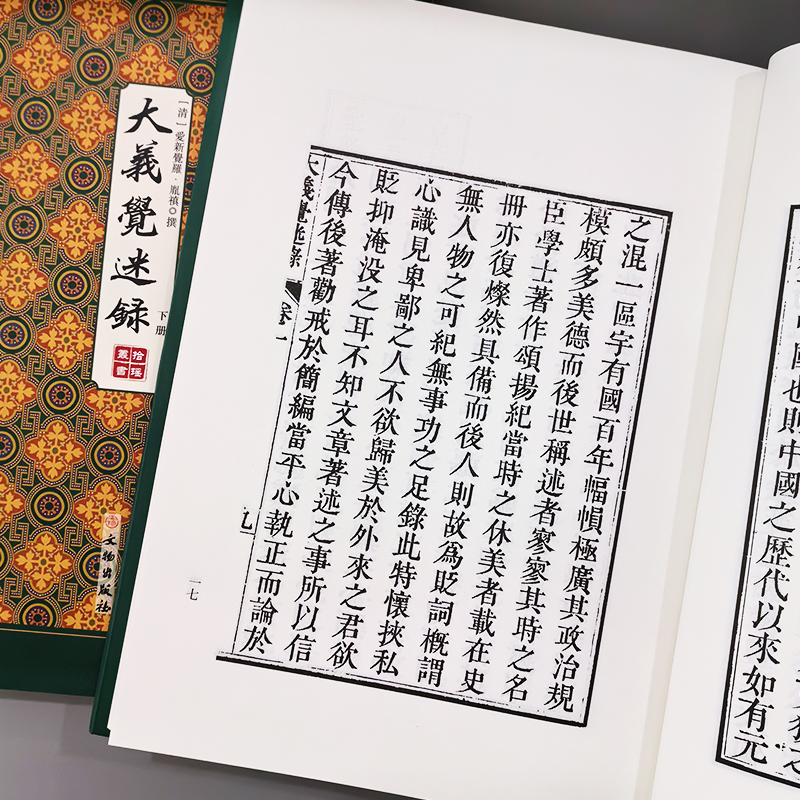 大義覺迷録
[清]愛新覺羅·胤禛◎撰
下册
拾瑶叢書
文物出版社
之混一區宇有國百年幅幀極廣其政治規
模頗多美德而後世稱述者寥寥其時之名
臣學士著作頌揚紀當時之休美者載在史
冊亦復燦然具備而後人則故為貶詞概謂
無人物之可紀無事功之足錄此特懷挾私
心識見卑鄙之人不欲歸美於外來之君欲
貶抑淹没之耳不知文章著述之事所以信
今傳後著勸戒於簡編當平心執正而論於
大義覺迷錄
卷一
一七
國也則中國之歷代以來如有元